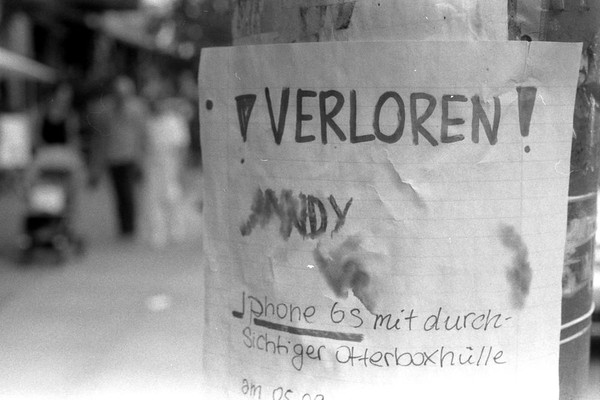 ! VERLOREN !
HANDY
Iphone 6s mit durch-
Sichtiger Otterboxhülle
am 05.09